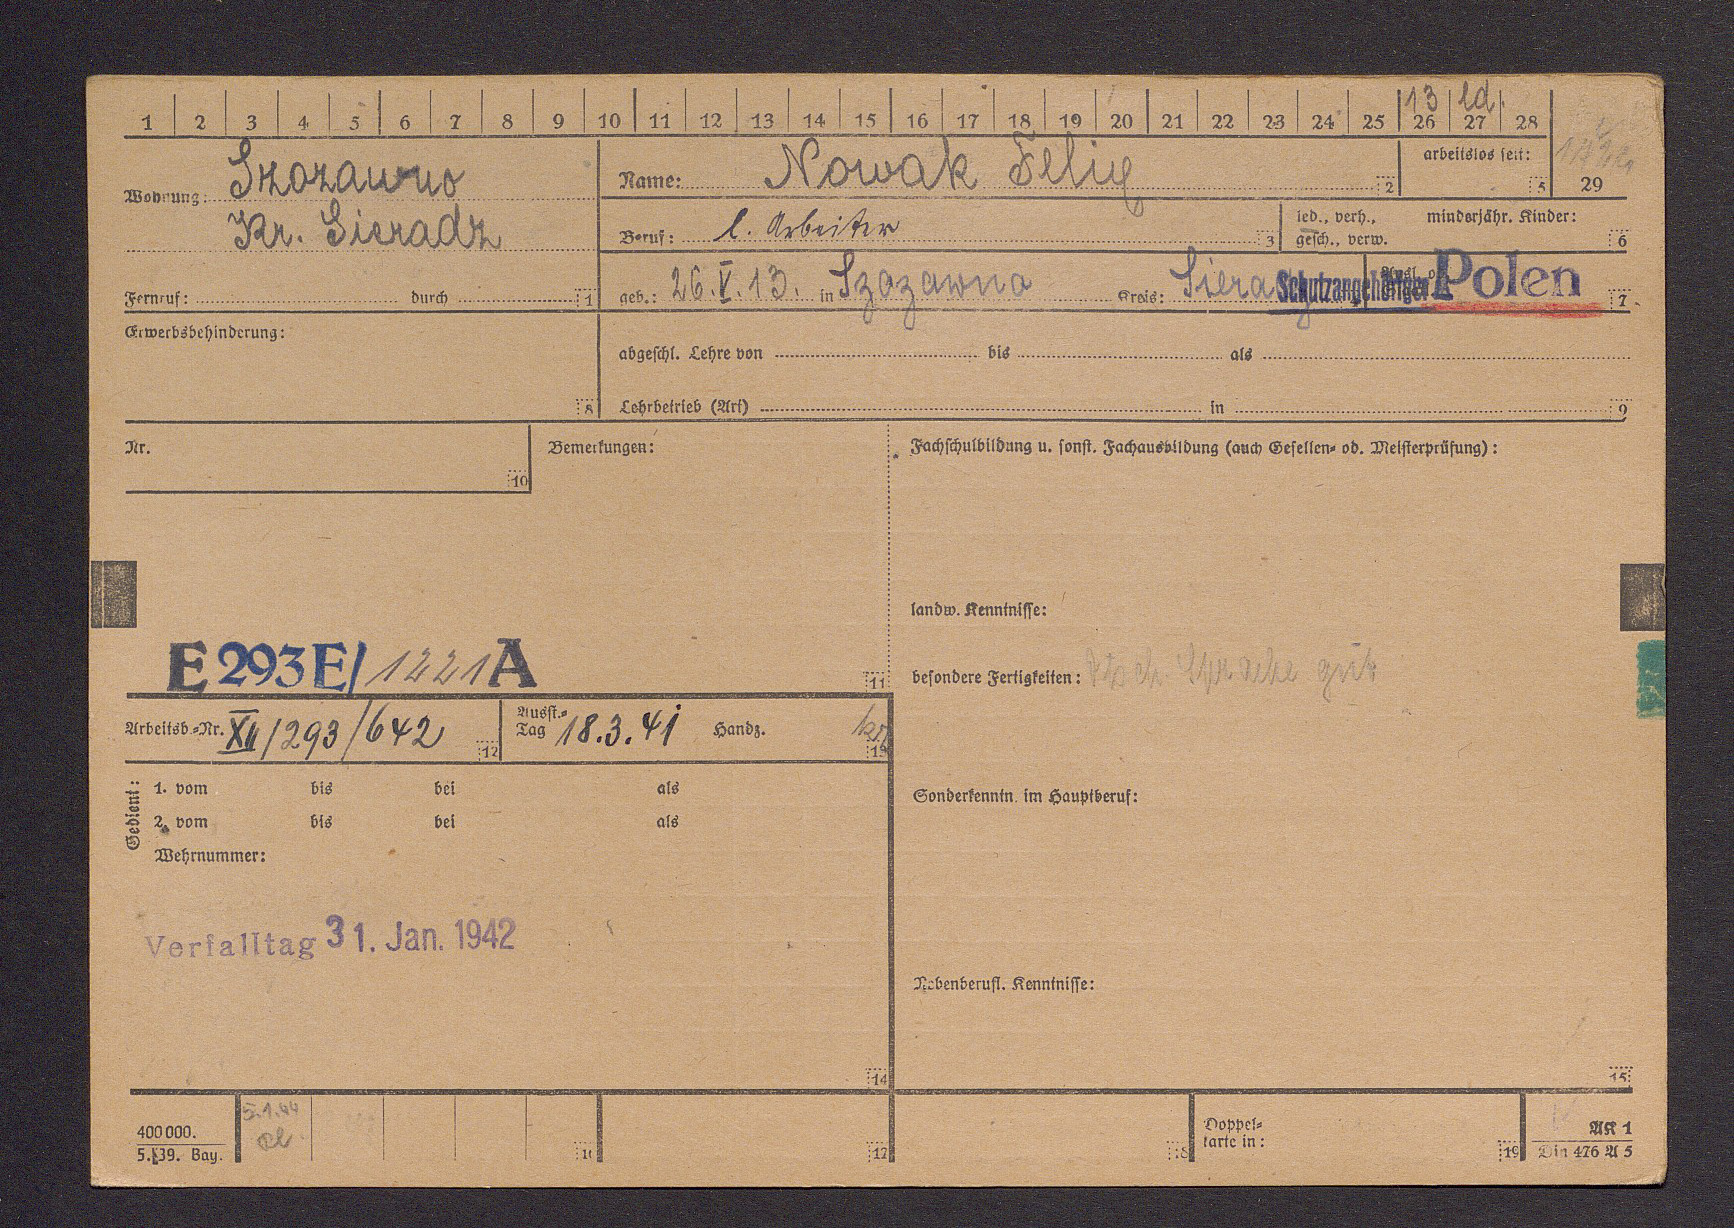 1 2 3 4 5 6 7 8 9 10 11 12 13 14 15 16 17 18 19 20 21 22 23 24 25 26 27 28
13 ld.
Wohnung: Szozawno
Kr. Sieradz
Name: Nowak Felix 2
arbeitslos seit: 5
29
Beruf: l. Arbeiter 3
led., verh., gesch., verw.
minderjähr. Kinder: 6
Fernruf: durch 1
geb.: 26.V.13. in Szozawno Kreis: Siera
Schutzangehöriger Polen 7
Erwerbsbehinderung: 8
abgeschl. Lehre von bis als
Lehrbetrieb (Art) in 9
Nr. 10
Bemerkungen:
Fachschulbildung u. sonst. Fachausbildung (auch Gesellen- od. Meisterprüfung):
landw. Kenntnisse:
E 293 E/ 1221 A 11
besondere Fertigkeiten: dtsch. Sprache gut
Arbeitsb.-Nr. XII/293/642 12
Ausst.-Tag 18.3.41 Handz. 13
Gedient:
1. vom bis bei als
2. vom bis bei als
Wehrnummer:
Sonderkenntn. im Hauptberuf:
Verfalltag 31. Jan. 1942
Nebenberufl. Kenntnisse:
14
15
400 000.
5. 39. Bay.
5.1.44
16
17
18
Doppel-
karte in: 19
AK 1
Din 476 A 5